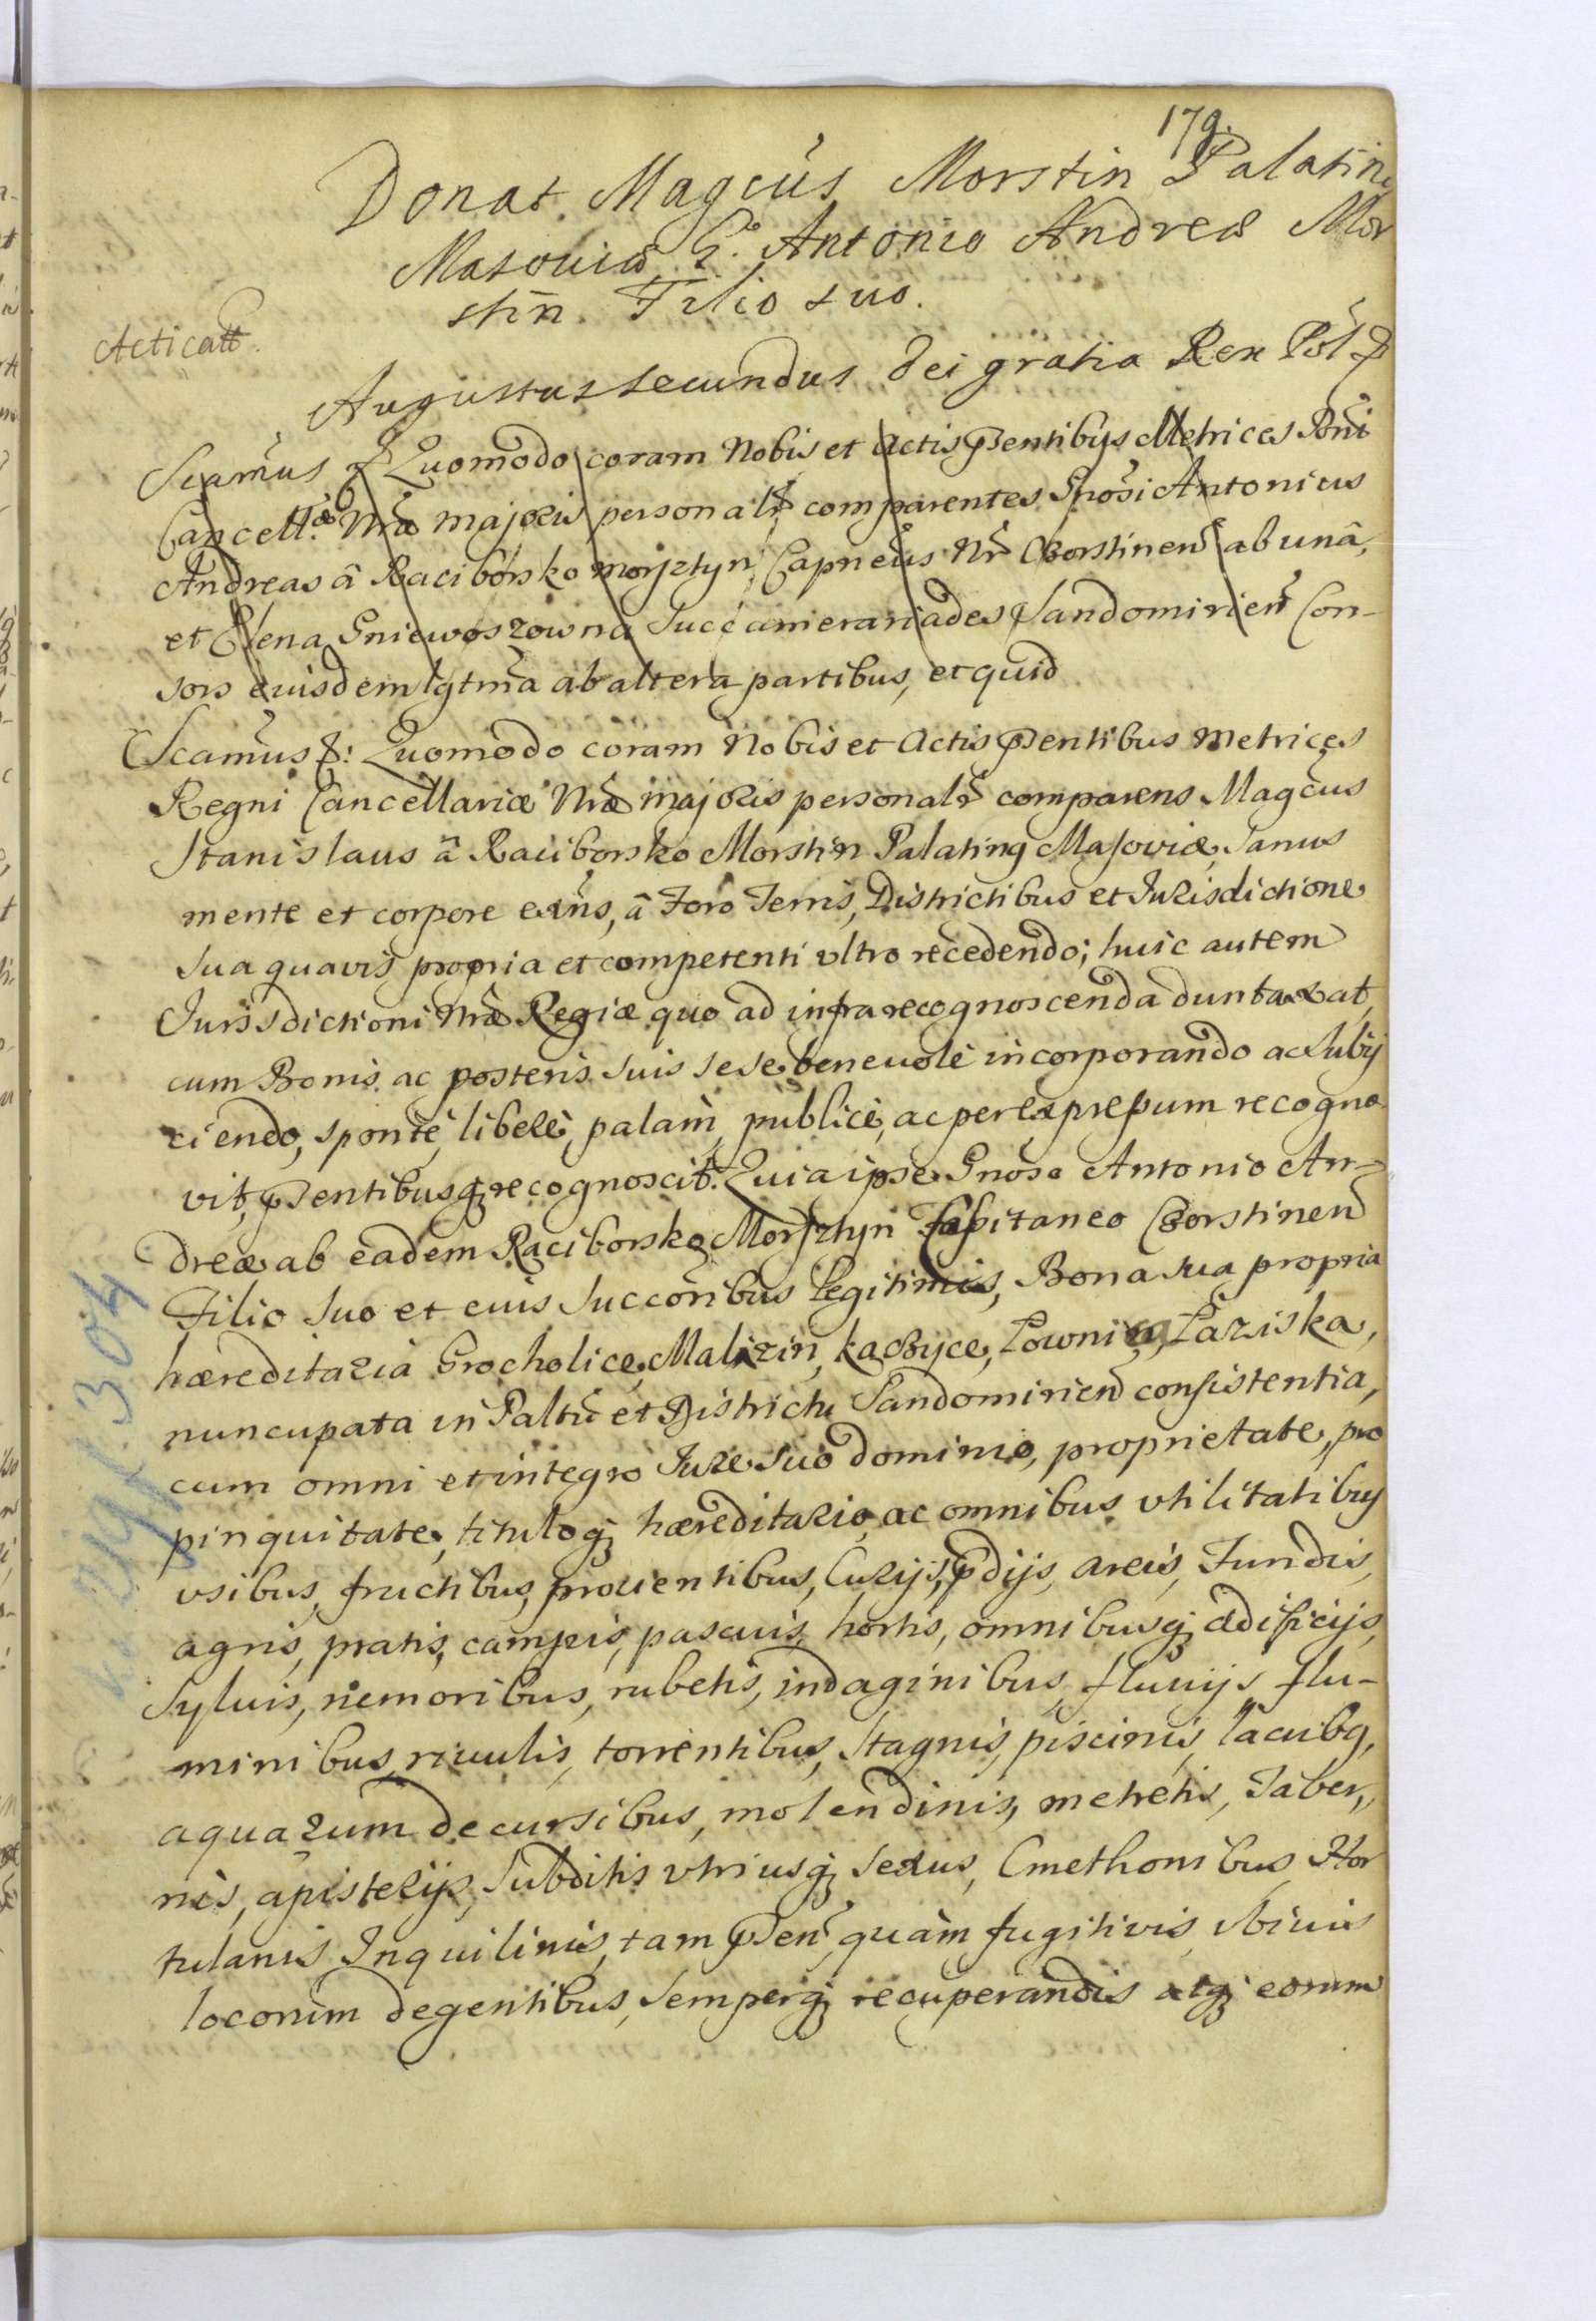 179.
Donat. Magcus Morstin Palatin
Masoviæ G. Antonio Andreæ Mor
stin. Filio suo.
Acticatt.
Augustus Secundus Dei gratia Rex Pol
Scamus Quomodo coram Nobis et Actis pñtibus Metrices Rñi
Cancellæ Nræ majoris personalr comparentes Gnosi Antonius
Andreas â Raciborsko Morsztyn Capneus Nr Czorstinen ab unâ,
et Elena Gniewoszowna Succamerariades Sandomirien Con-
sors eiusdem lgtma ab altera partibus, et quid
Scamus &: Quomodo coram Nobis et Actis pñtibus Metrices
Regni Cancellariæ Nræ majoris personalr comparens Magcus
Stanislaus â Raciborsko Morstin Palatinq Masoviæ, Sanus
mente et corpore exns, â Foro Terris, Districtibus et Jurisdictione
sua quavis propria et competenti ultro recedendo; huic autem
Jurisdictioni Nræ Regiæ quo ad infra recognoscenda duntaxat,
cum Bonis ac posteris suis sese benevolè incorporando ac subij
ciendo, sponte, liberè, palàm, publicè, ac per expressum recogno
vit, pñtibusq recognoscit. Quia ipse Gnoso Antonio An=
dreæ ab eadem Raciborsko Morsztyn Capitaneo Czorstinen
Filio suo et eius Succoribus Legitimis, Bona sua propria
hæreditaria Grocholice, Malizin, Kaczyce, Łownica, Łaziska,
nuncupata in Paltu et Districtu Sandomirien consistentia,
cum omni et integro Jure suo dominio, proprietate, pro
pinquitate, tituloq hæreditario, ac omnibus utilitatibus
usibus, fructibus, provientibus, Curijs, pdijs, areis, Fundis,
agris, pratis, campis, pascuis, hortis, omnibusq ædificijs,
Sylvis, nemoribus, rubetis, indaginibus, fluvijs flu-
minibus, rivulis, torrentibus, Stagnis, piscinis, lacubq,
aquarum decursibus, molendinis, metretis, Taber,,
nis, apisterijs, Subditis utriusq sexus, Cmethonibus, Hor
tulanis Inquilinis, tam psen quàm fugitivis, ubivis
locorum degentibus, semperq recuperandis atq eorum
304